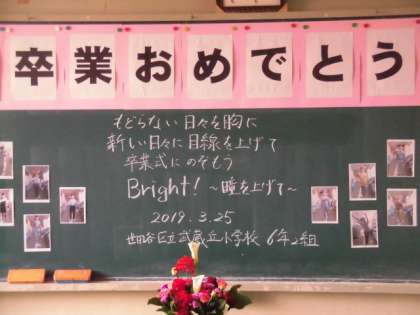 卒業おめでとう
もどらない日々を胸に
新しい日々に目線を上げて
卒業式にのぞもう
Bright! ～瞳を上げて～
2019.3.25
世田谷区立武蔵丘小学校 6年2組